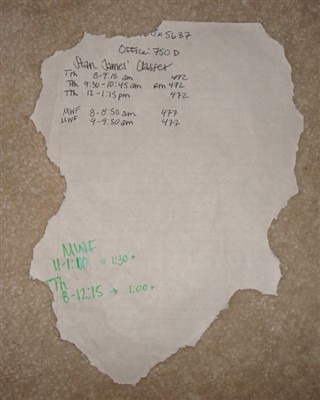 x 5637
Office: 750 D
Stan James' Classes
TTh 8-9:15 am 472
TTh 9:30-10:45 am rm 472
TTh 12-1:15 pm 472
MWF 8-8:50 am 477
MWF 9-9:50 am 477
MWF
11-1:00 1:30
TTh
8-12:15 → 1:00